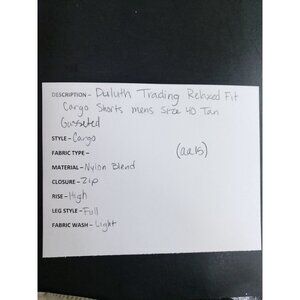 DESCRIPTION – Duluth Trading Relaxed Fit
Cargo Shorts mens Size 40 Tan
Gusseted
STYLE – Cargo
FABRIC TYPE – (aa15)
MATERIAL – Nylon Blend
CLOSURE – Zip
RISE – High
LEG STYLE – Full
FABRIC WASH – Light